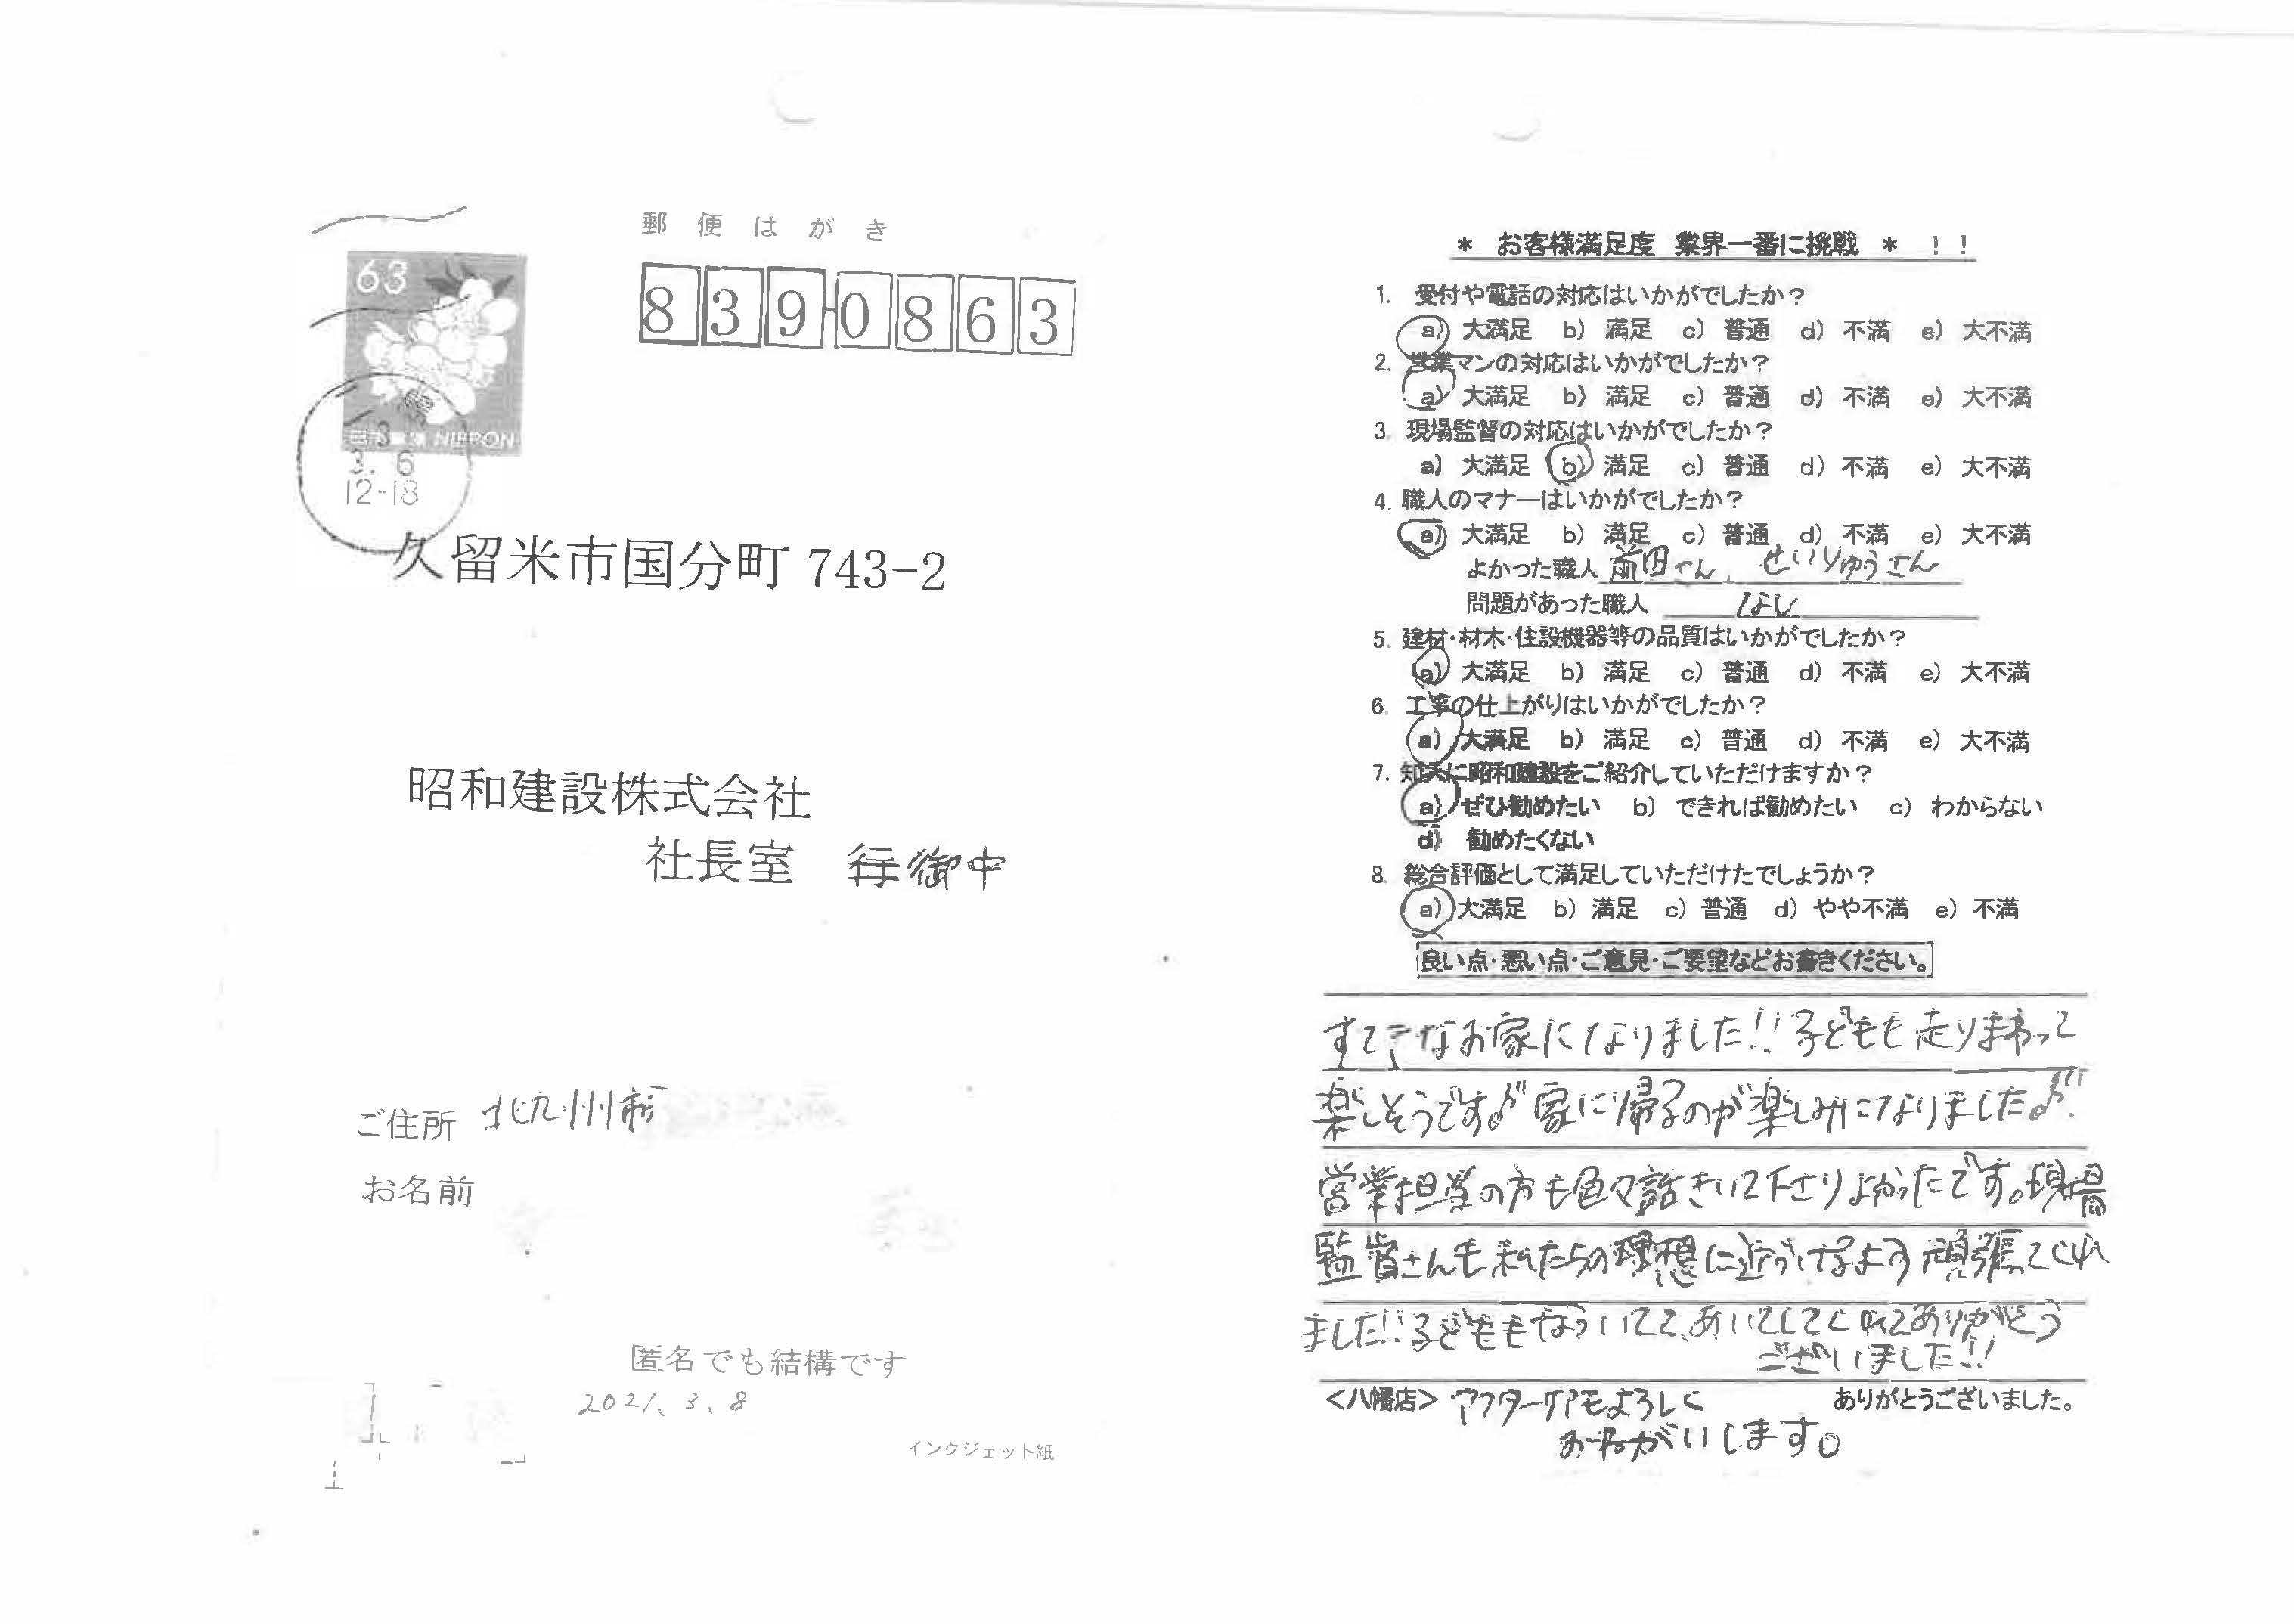 郵便はがき
63
8390863
日本郵便 NIPPON
3. 6
12-18
久留米市国分町 743-2
昭和建設株式会社
社長室 行 御中
ご住所 北九州市
お名前
匿名でも結構です
2021、3、8
インクジェット紙
* お客様満足度 業界一番に挑戦 * !!
1. 受付や電話の対応はいかがでしたか?
a) 大満足 b) 満足 c) 普通 d) 不満 e) 大不満
2. 営業マンの対応はいかがでしたか?
a) 大満足 b) 満足 c) 普通 d) 不満 e) 大不満
3. 現場監督の対応はいかがでしたか?
a) 大満足 b) 満足 c) 普通 d) 不満 e) 大不満
4. 職人のマナーはいかがでしたか?
a) 大満足 b) 満足 c) 普通 d) 不満 e) 大不満
よかった職人 前田さん、せいりゅうさん
問題があった職人 なし
5. 建材・材木・住設機器等の品質はいかがでしたか?
a) 大満足 b) 満足 c) 普通 d) 不満 e) 大不満
6. 工事の仕上がりはいかがでしたか?
a) 大満足 b) 満足 c) 普通 d) 不満 e) 大不満
7. 知人に昭和建設をご紹介していただけますか?
a) ぜひ勧めたい b) できれば勧めたい c) わからない
d) 勧めたくない
8. 総合評価として満足していただけたでしょうか?
a) 大満足 b) 満足 c) 普通 d) やや不満 e) 不満
良い点・悪い点・ご意見・ご要望などお書きください。
すてきなお家になりました!!子どもも走りまわって
楽しそうです♪家に帰るのが楽しみになりました♪!!
営業担当の方も色々話きいて下さりよかったです。現場
監督さんも私たちの理想に近づけるよう頑張ってくれ
ました!!子どももなついてて、あいてしてくれてありがとう
ございました!!
<八幡店> アフターケアもよろしく ありがとうございました。
おねがいします。